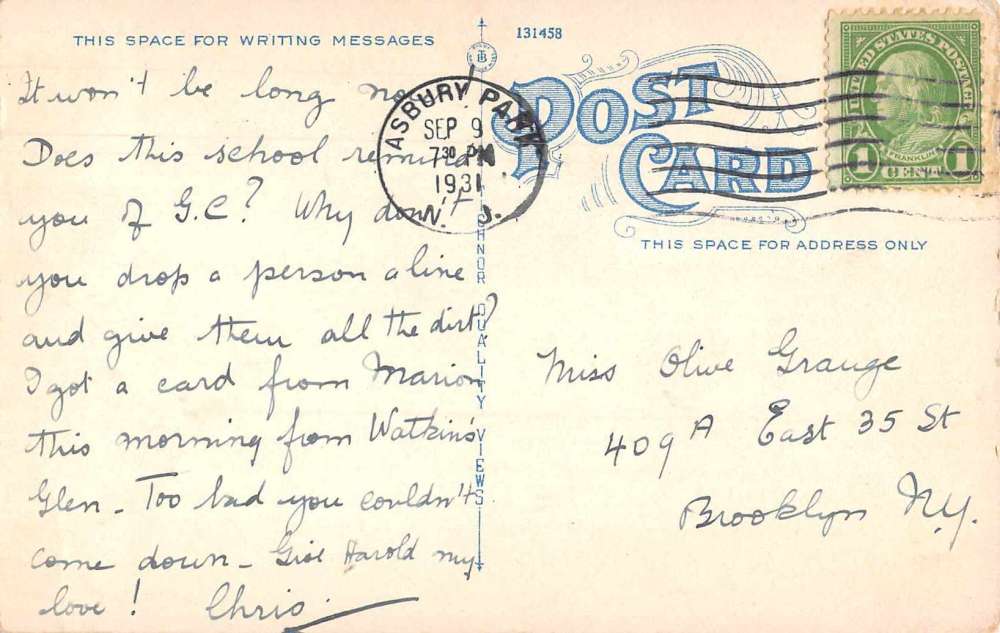 THIS SPACE FOR WRITING MESSAGES
It won't be long no
Does this school remind
you of G.C? Why don't
you drop a person a line
and give them all the dirt?
I got a card from Marion
this morning from Watkin's
Glen - Too bad you couldn't
come down - Give Harold my
love! Chris
131458
ASBURY PARK
SEP 9
7 30 PM
1931
N. J.
HNOR QUALITY VIEWS
POST
CARD
THIS SPACE FOR ADDRESS ONLY
UNITED STATES POSTAGE
FRANKLIN
1 CENT 1
Miss Olive Grange
409A East 35 St
Brooklyn N.Y.